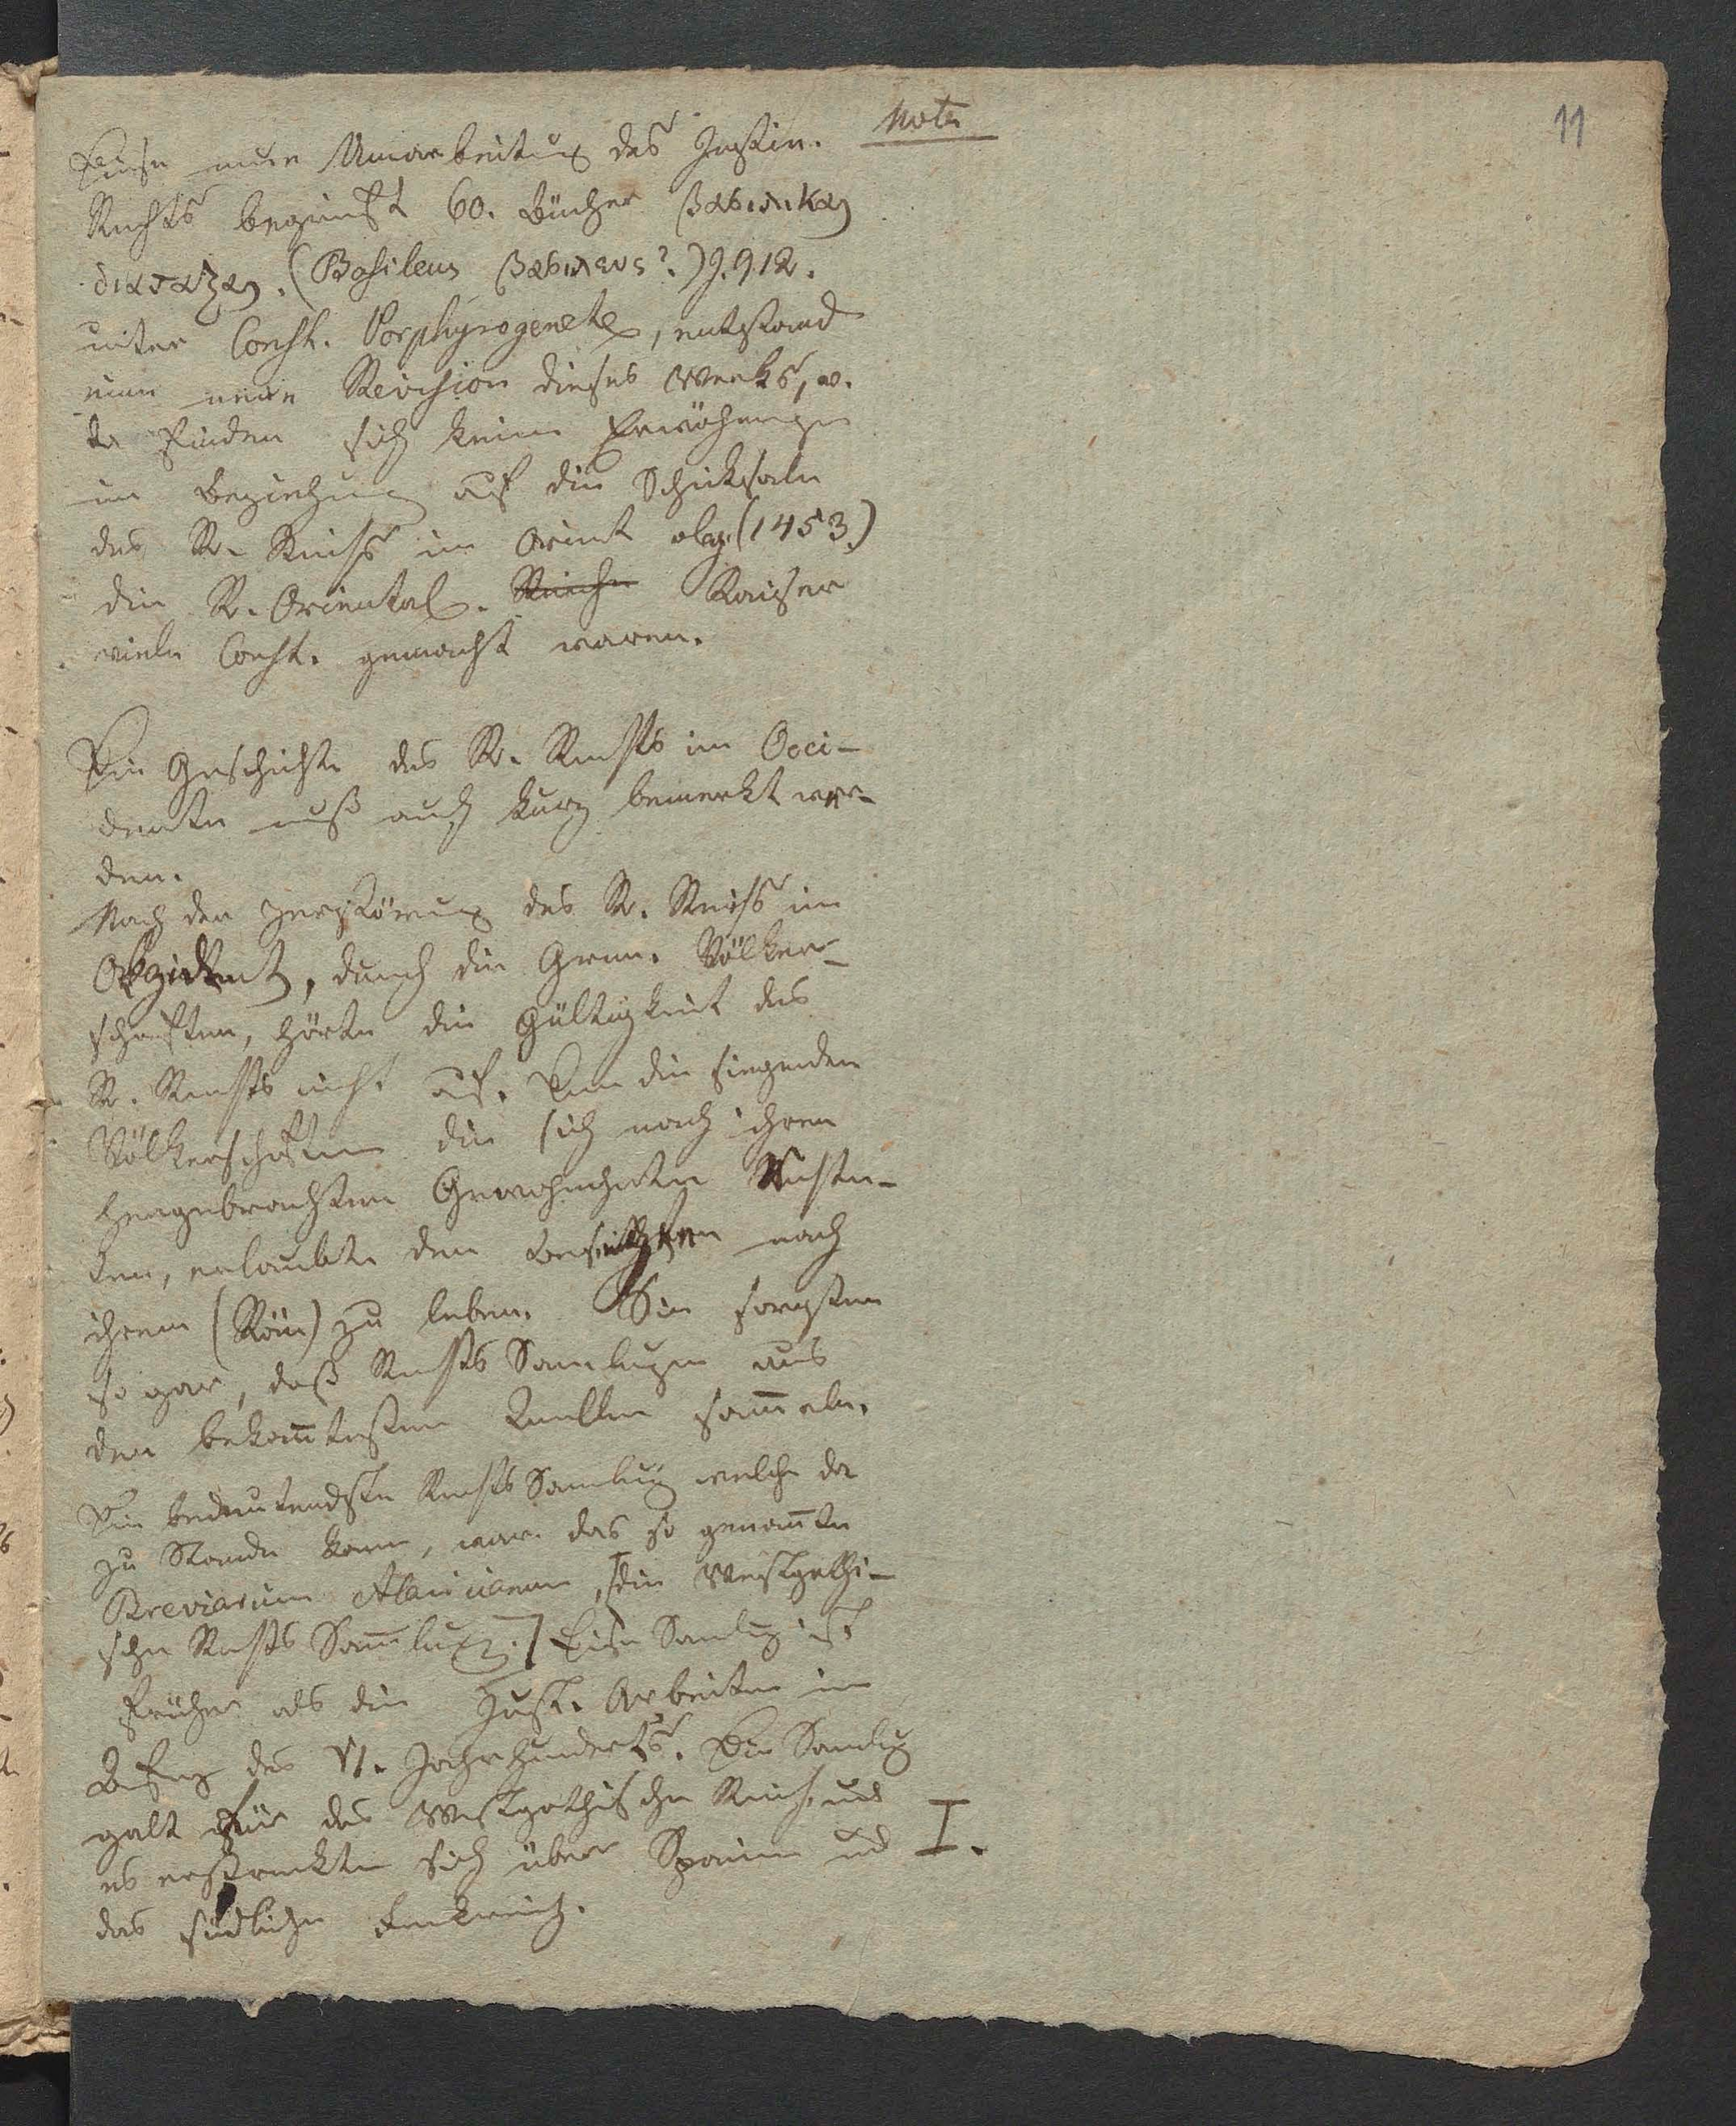 Note
11
Diese neue Umarbeitung des Justin.
Rechts begreift 60. Bücher βασιλικαι
διαταξαι. (Basileus βασιλευς?.) J. 912.
unter Const. Porphyrogeneta, entstand
eine neue Revision dieses Werks, v.
da finden sich keine Erwähnungen
in Beziehung auf die Schicksale
des R. Reichs im Orient obg. (1453.)
die R. Oriental. Reiche Kaiser
viele Const. gemacht waren.
Die Geschichte des R. Rechts im Occi-
dente muß auch kurz bemerkt wer-
den.
Nach der Zerstörung des R. Reichs im
Okzident, durch die Germ. Völker-
schaften, hörte die Gültigkeit des
R. Rechts nicht auf. Denn die siegenden
Völkerschaften die sich nach ihren
hergebrachten Gewohnheiten richte-
ten, erlaubte den Besiegten nach
ihrem (Röm) zu leben. Sie sorgten
so gar, daß Rechts Samlungen aus
den bekañtesten Quellen sam̄eln.
Die bedeutendste Rechts Samlung welche da
zu Stande kam, war das so genañte
Breviarium Alaricianum, [die Westgothi-
sche Rechts Sam̄lung.] Diese Samlung ist
früher als die Just. Arbeiten im
Anfang des VI. Jahrhunderts. Die Samlung
galt für das Westgothische Reich, und
es erstreckte sich über Spanien und I.
das südliche Frankreich.